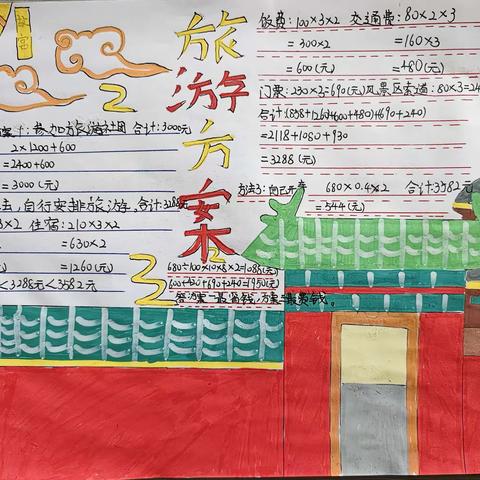 故宫
旅游方案
方案1：参加旅游社团 合计：3000元
2×1200+600
=2400+600
=3000(元)
自行安排旅游，合计：3288元
3×2 住宿：210×3×2
=630×2
=1260(元)
<3288元<3582元
饭费：100×3×2 交通费：80×2×3
=300×2 =160×3
=600(元) =480(元)
门票：230×2=690(元)风景区索道：80×3=24
合计(858+1260+600+480)+690+240)
=2118+1080+930
=3288(元)
方法3：自己开车 680×0.4×2 合计：3582元
=544(元)
680÷100×10×8×2=1088(元)
600+420+690+240=1950(元)
答：方案一最省钱，方案三最费钱。